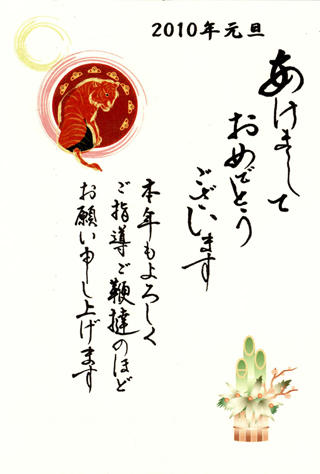 2010年元旦
あけまして
おめでとう
ございます
本年もよろしく
ご指導ご鞭撻のほど
お願い申し上げます